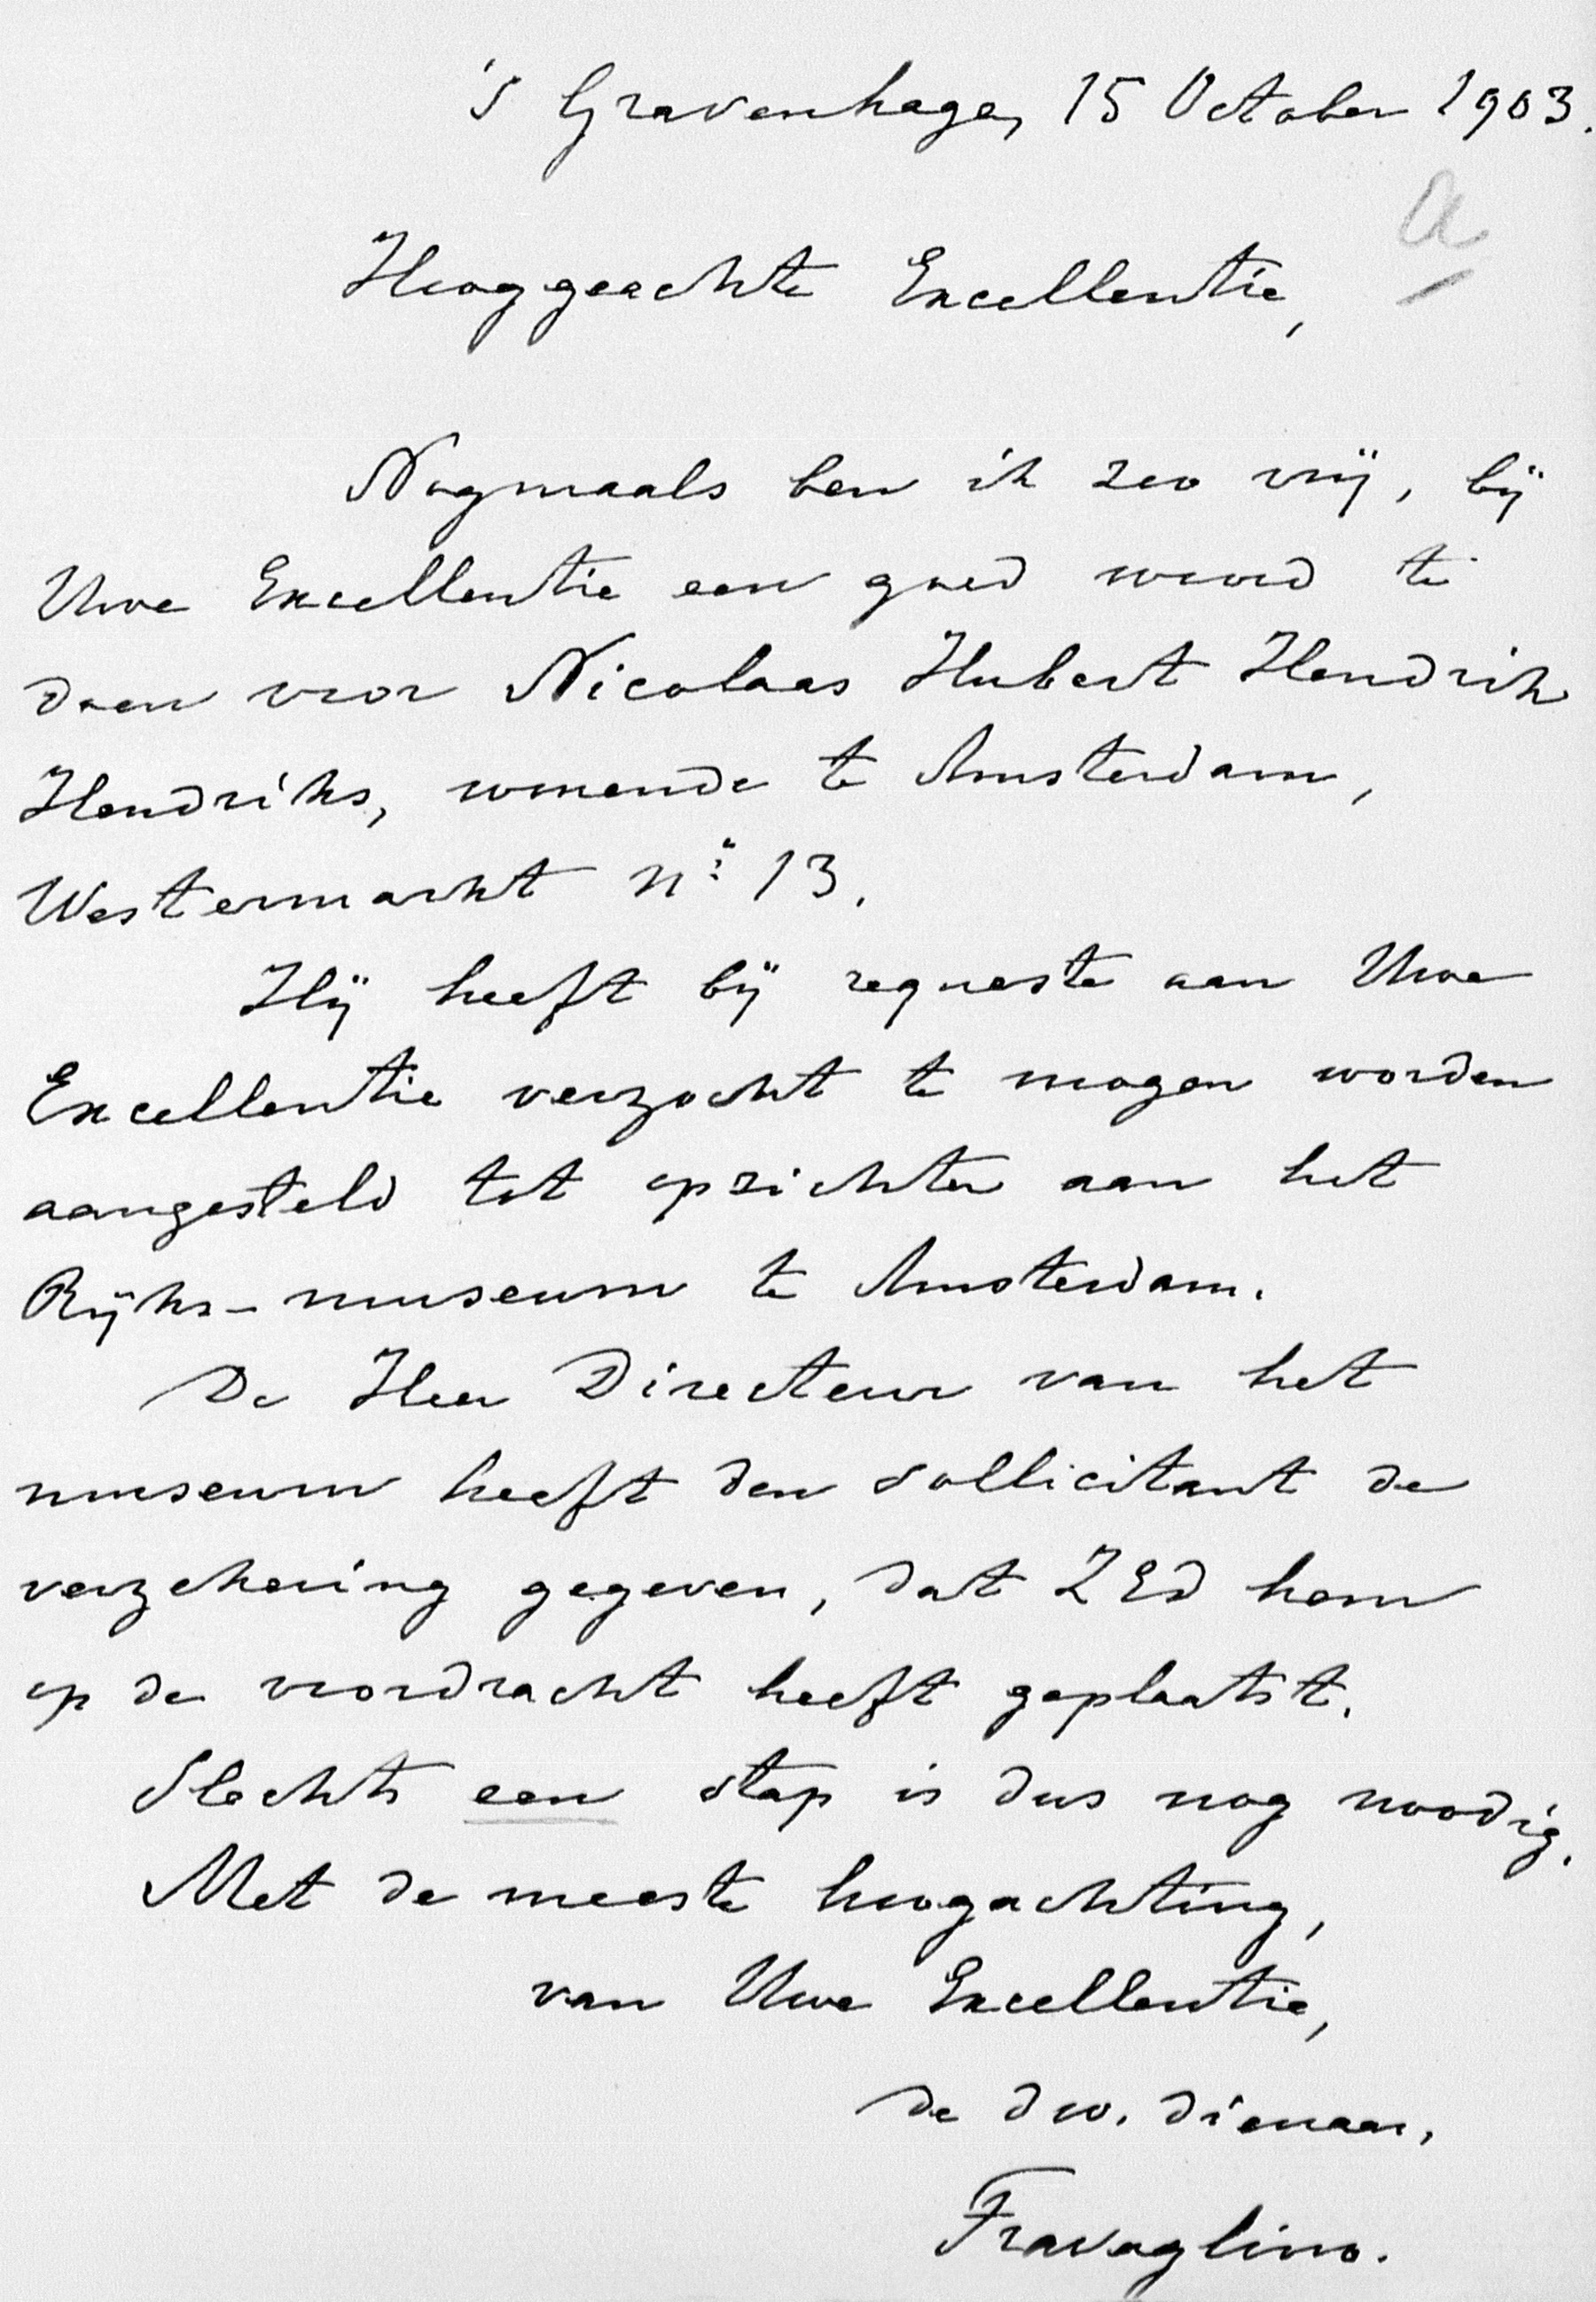 's Gravenhage, 15 October 1903.
a
Hooggeachte Excellentie,
Nogmaals ben ik zoo vrij, bij
Uwe Excellentie een goed woord te
doen voor Nicolaas Hubert Hendrik
Hendriks, wonende te Amsterdam,
Westermarkt no: 13.
Hij heeft bij requeste aan Uwe
Excellentie verzocht te mogen worden
aangesteld tot opzichter aan het
Rijks-museum te Amsterdam.
De Heer Directeur van het
museum heeft den sollicitant de
verzekering gegeven, dat ZEd hem
op de voordracht heeft geplaatst.
Slechts een stap is dus nog noodig.
Met de meeste hoogachting,
van Uwe Excellentie,
de dw. dienaar,
Travaglino.